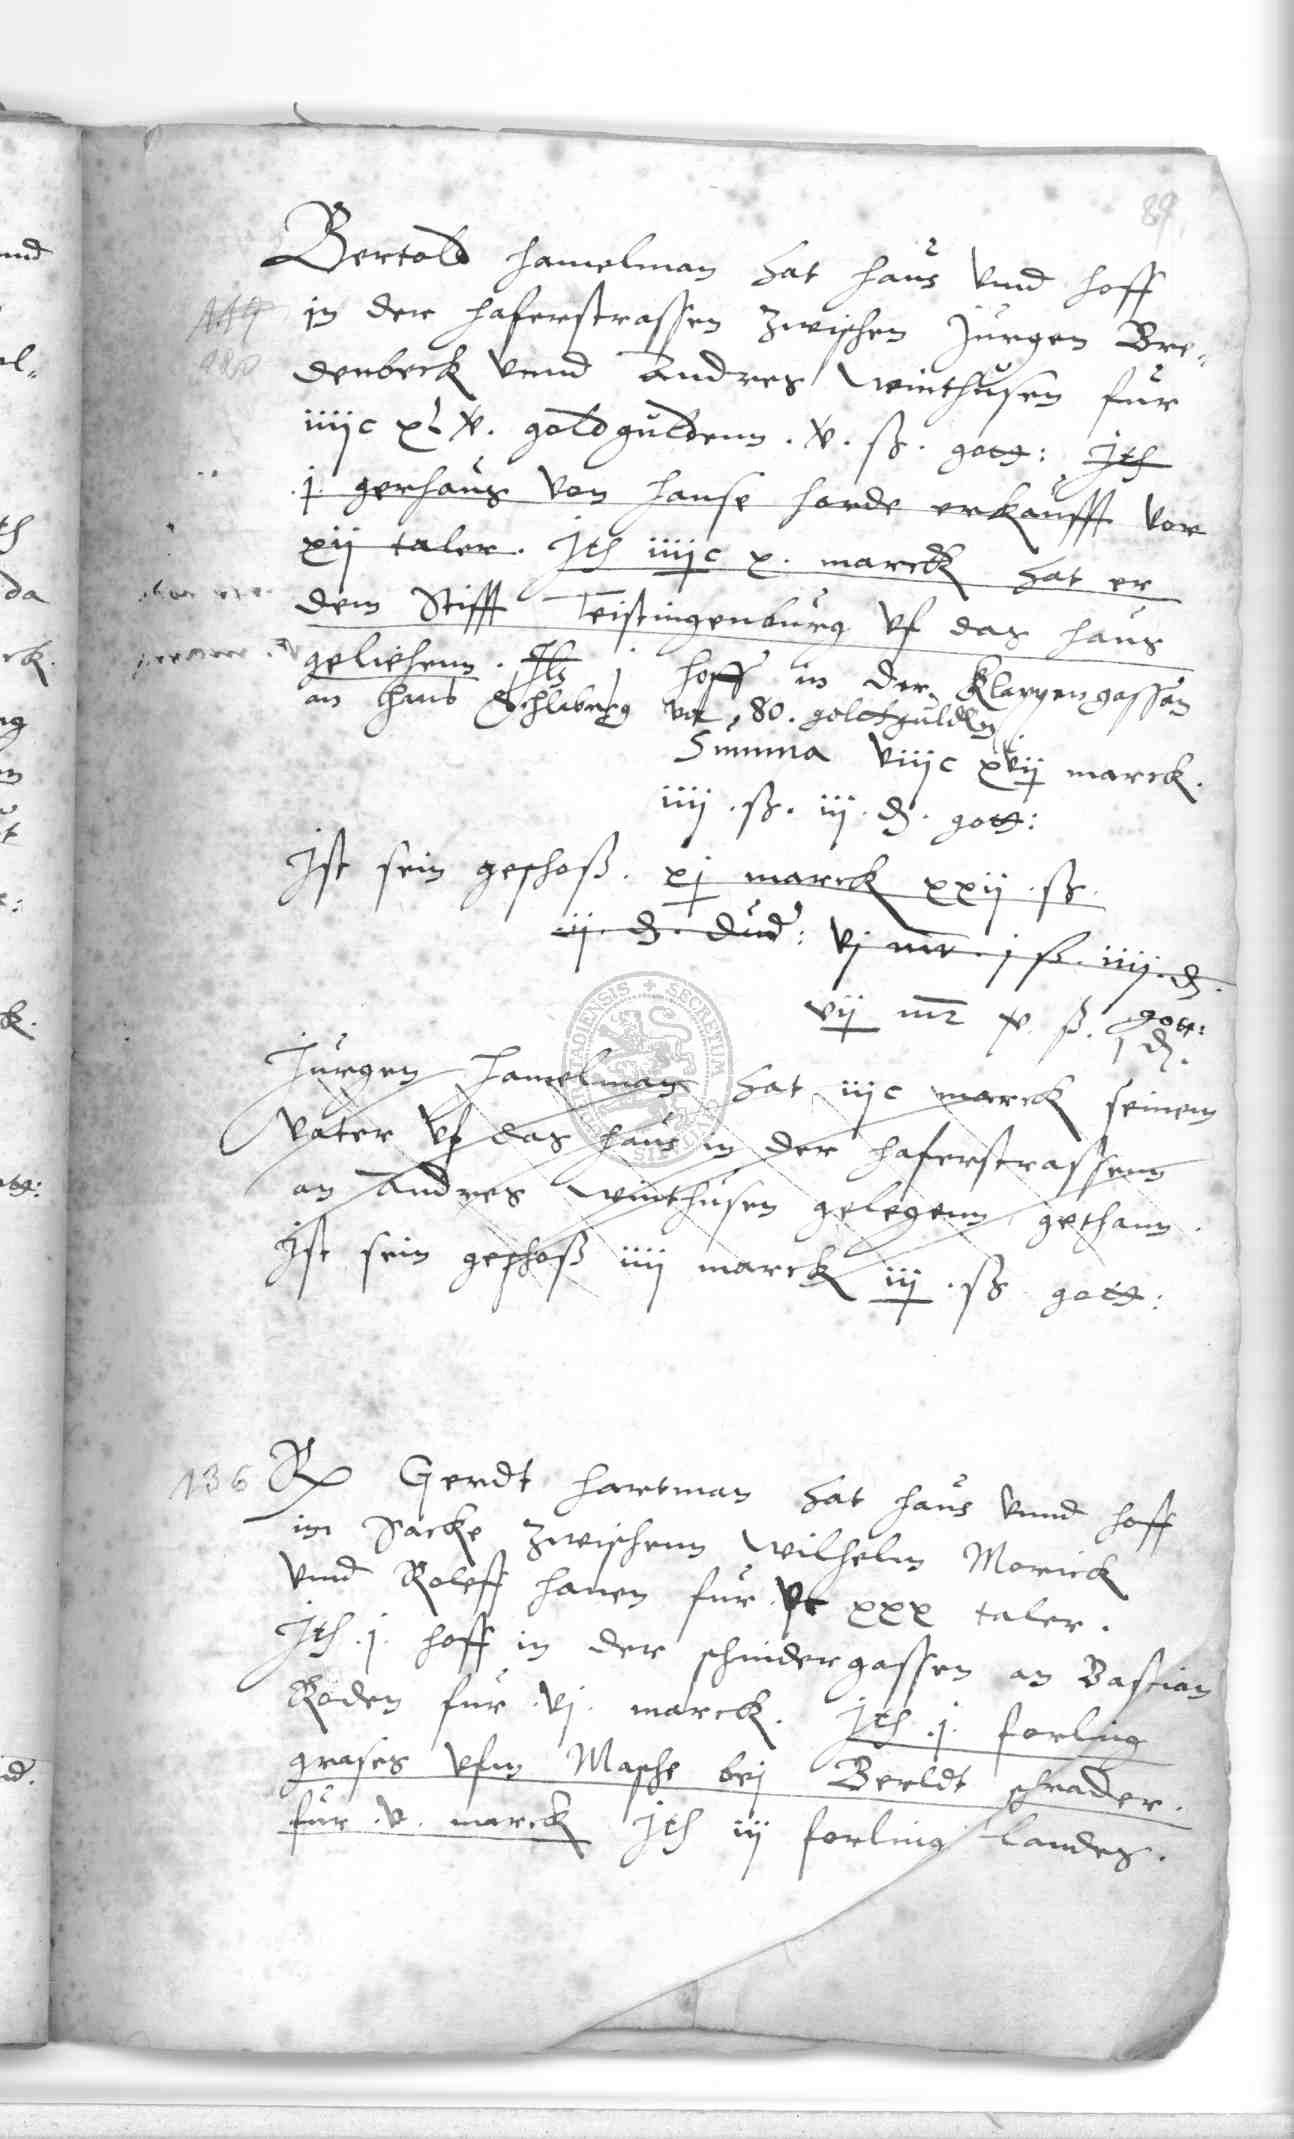 89
Bertold Hamelman hat haus vnnd hoff
in der haferstrassen zwischen Jurgen Bre-
denbeck vnnd Andres Winthusen fur
iiijc xl v. goldguldenn . v . ß . gott: Jth
j. gerhaus von Hanse Horde erkaufft vor
xij taler . Jth iiijc x . marck hat er
dem Stifft Teistingenburg vf das haus
geliehenn . Jth j hoff in der Klappengassen
an Hans vor 80 . goltgulden
Summa viijc xvij marck .
iiij . ß . iij . d . gott:
Jst sein geschoß . xj marck xxij . ß .
iij . d . dud: vj mr . j ß . iiij . d .
vij mr v . ß . gott:
j d .
Jurgen Hamelman hat iijc marck seinem
vater vf das haus in der haferstrassenn
an Andres Winthusen gelegenn gethann .
Jst sein geschoß iiij marck iij . ß gott:
136 Gerdt Hartman hat haus vnnd hoff
im Sacke zwischenn Wilhelm Morick
vnnd Roleff Hanen fur vc xxx taler .
Jth . j . hoff in der schindergassen an Bastian
Roden fur . vj . marck . Jth . j . forling
grases vfm Masche bej Berldt schrader .
fur . v . marck Jth iij forling landes .